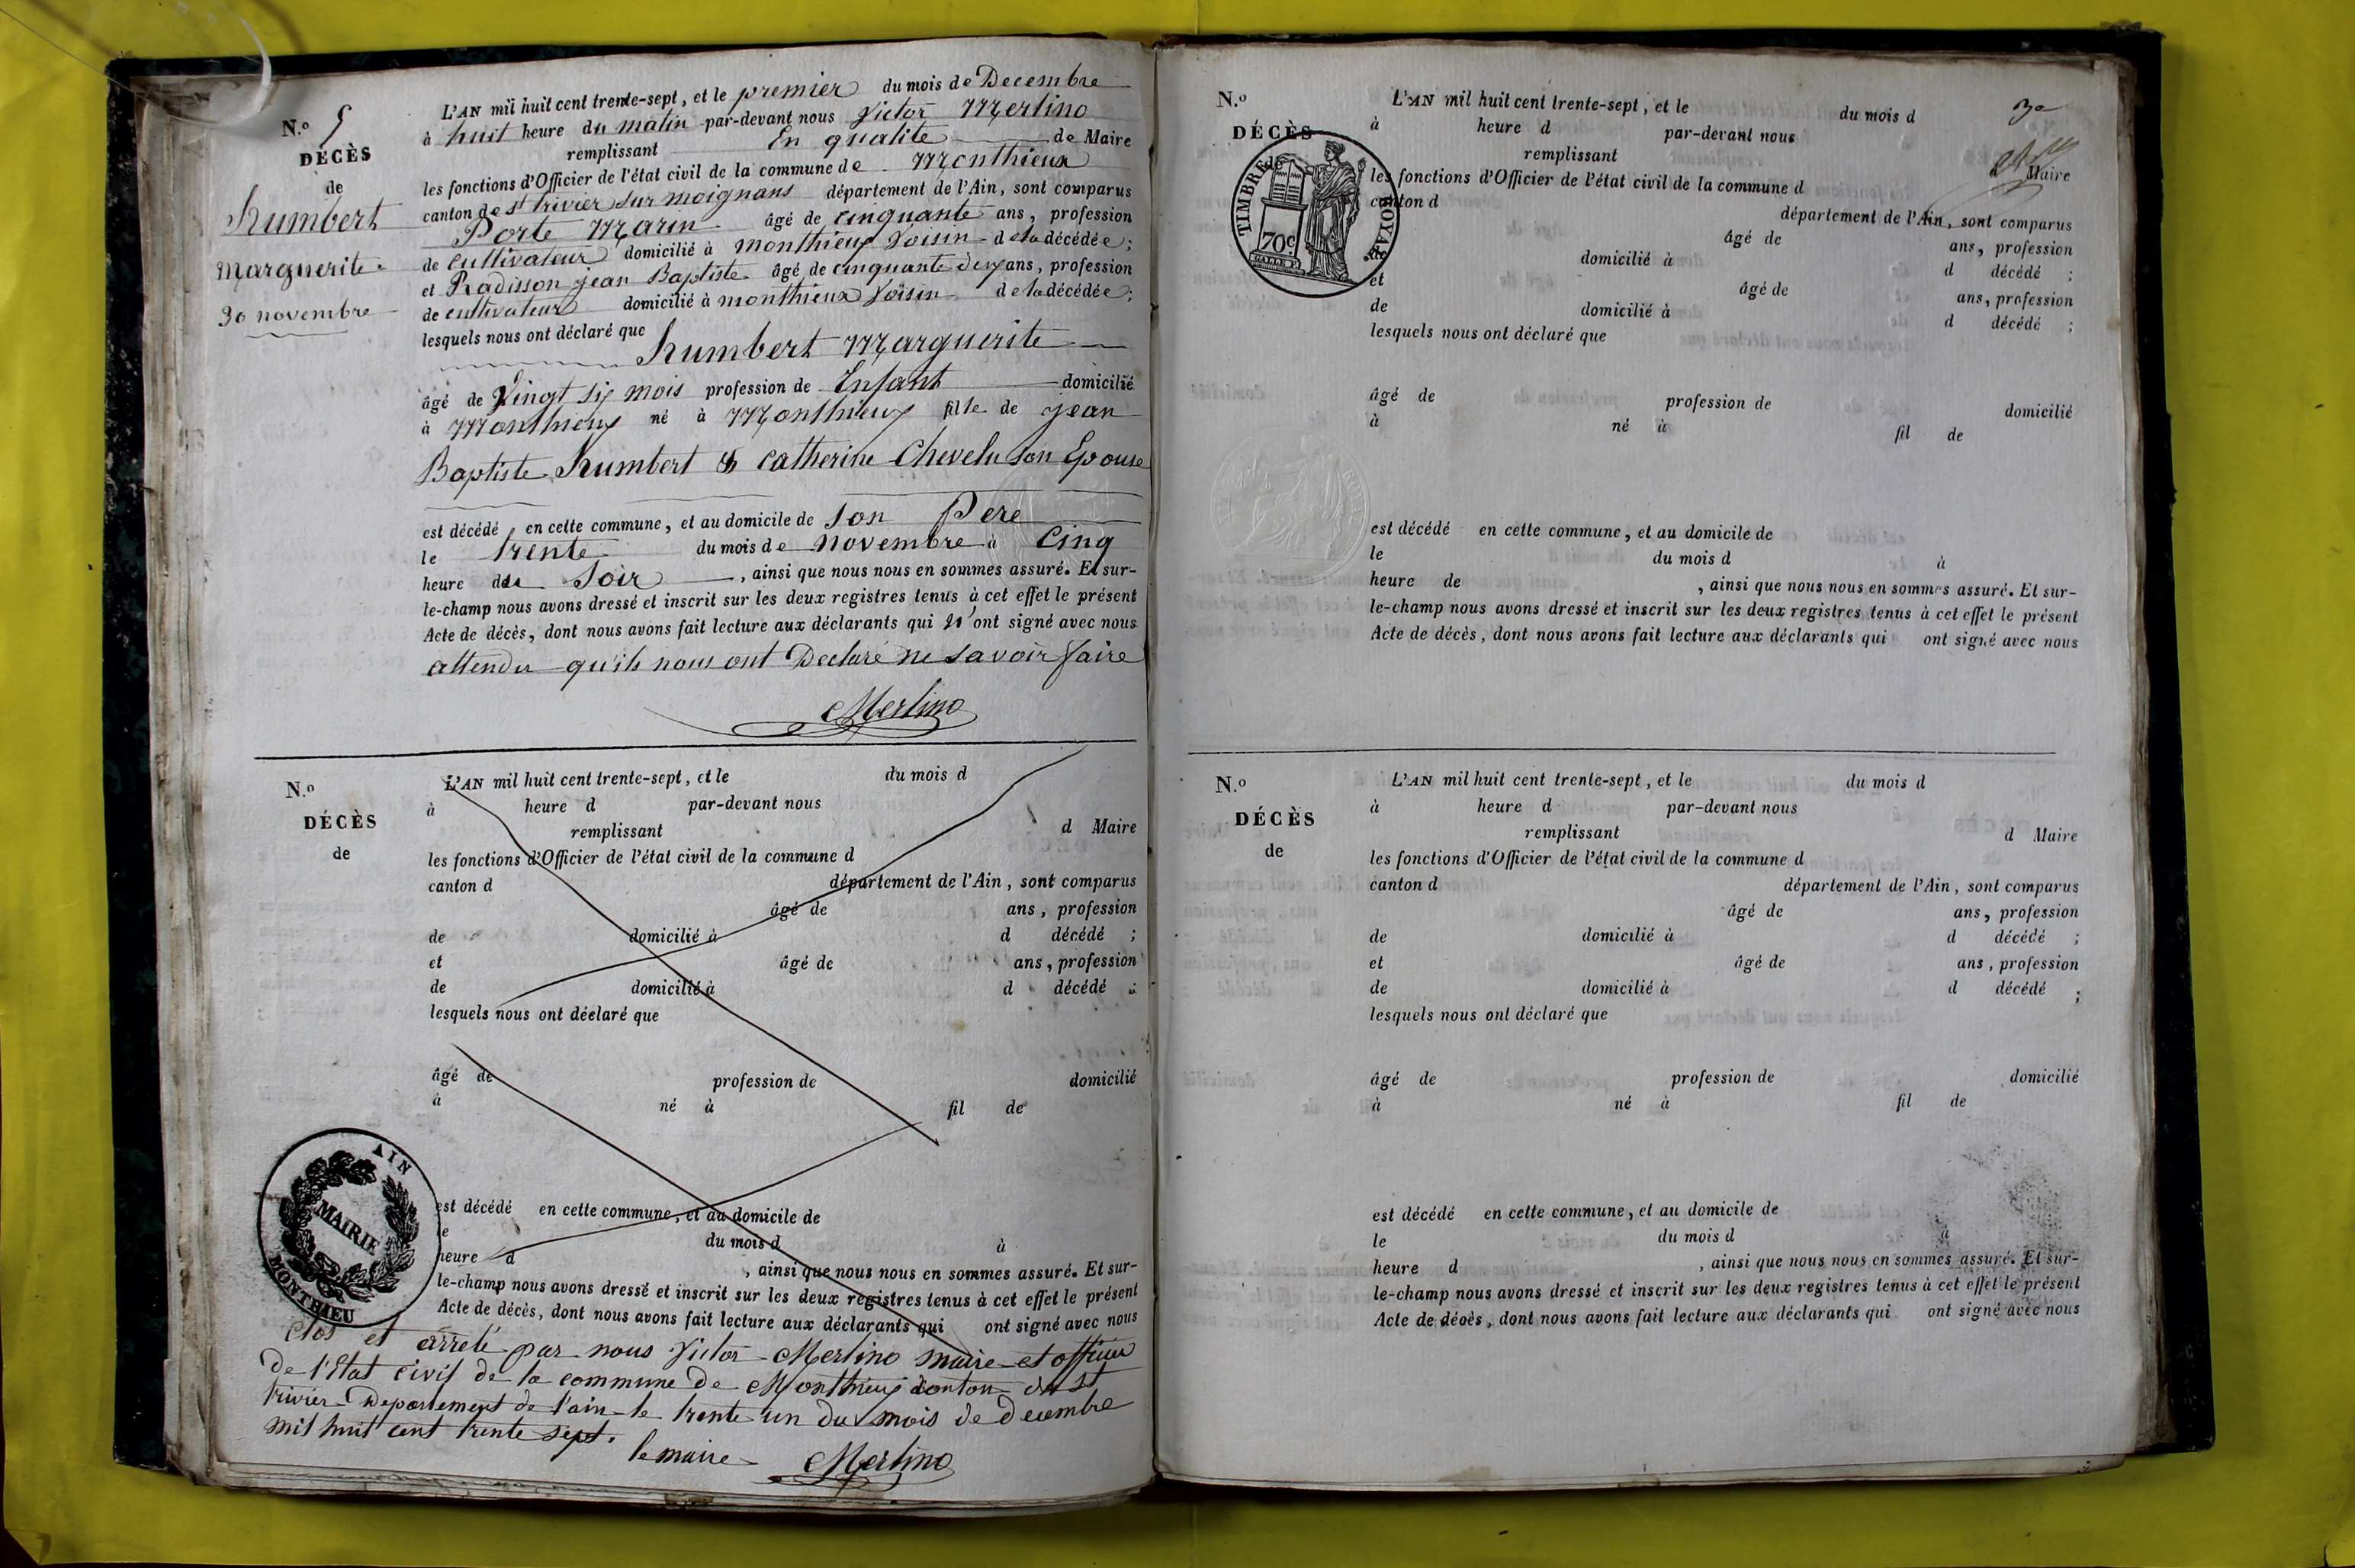 N.o 5
DÉCÈS
de
humbert
marguerite
30 novembre
L'AN mil huit cent trente-sept, et le premier du mois de Decembre
à huit heure du matin par-devant nous Victor Merlino
remplissant En qualite de Maire
les fonctions d'Officier de l'état civil de la commune de Monthieux
canton de st trivier sur moignans département de l'Ain, sont comparus
Porte Marin âgé de cinquante ans, profession
de cultivateur domicilié à monthieux Voisin de la décédée;
et Radisson jean Baptiste âgé de cinquante deux ans, profession
de cultivateur domicilié à monthieux Voisin de la décédée;
lesquels nous ont déclaré que
humbert Marguerite
âgé de Vingt six mois profession de Enfant domicilié
à Monthieux né à Monthieux fille de jean
Baptiste humbert & catherine Chevelu son Epouse
est décédé en cette commune, et au domicile de son Pere
le trente du mois de novembre à Cinq
heure du Soir, ainsi que nous nous en sommes assuré. Et sur-
le-champ nous avons dressé et inscrit sur les deux registres tenus à cet effet le présent
Acte de décès, dont nous avons fait lecture aux déclarants qui n'ont signé avec nous
attendu qu'ils nous ont Declaré ne savoir faire
Merlino
N.o
DÉCÈS
de
L'AN mil huit cent trente-sept, et le du mois d
à heure d par-devant nous
remplissant d Maire
les fonctions d'Officier de l'état civil de la commune d
canton d département de l'Ain, sont comparus
âgé de ans, profession
de domicilié à d décédé ;
et âgé de ans, profession
de domicilié à d décédé ;
lesquels nous ont déclaré que
âgé de profession de domicilié
à né à fil de
est décédé en cette commune, et au domicile de
le du mois d à
heure d , ainsi que nous nous en sommes assuré. Et sur-
le-champ nous avons dressé et inscrit sur les deux registres tenus à cet effet le présent
Acte de décès, dont nous avons fait lecture aux déclarants qui ont signé avec nous
AIN
MAIRIE
MONTHIEU
Clos et arrêté par nous Victor Merlino maire et officier
De l'Etat civil de la commune De Monthieux canton de St
trivier Departement de l'ain le trente un du mois de decembre
mil huit cent trente sept.
le maire Merlino
N.o
DÉCÈS
TIMBRE ROYAL
70c
L'AN mil huit cent trente-sept, et le du mois d
à heure d par-devant nous
remplissant d Maire
les fonctions d'Officier de l'état civil de la commune d
canton d département de l'Ain, sont comparus
âgé de ans, profession
de domicilié à d décédé ;
et âgé de ans, profession
de domicilié à d décédé ;
lesquels nous ont déclaré que
âgé de profession de domicilié
à né à fil de
est décédé en cette commune, et au domicile de
le du mois d à
heure de , ainsi que nous nous en sommes assuré. Et sur-
le-champ nous avons dressé et inscrit sur les deux registres tenus à cet effet le présent
Acte de décès, dont nous avons fait lecture aux déclarants qui ont signé avec nous
N.o
DÉCÈS
de
L'AN mil huit cent trente-sept, et le du mois d
à heure d par-devant nous
remplissant d Maire
les fonctions d'Officier de l'état civil de la commune d
canton d département de l'Ain, sont comparus
âgé de ans, profession
de domicilié à d décédé ;
et âgé de ans, profession
de domicilié à d décédé ;
lesquels nous ont déclaré que
âgé de profession de domicilié
à né à fil de
est décédé en cette commune, et au domicile de
le du mois d à
heure d , ainsi que nous nous en sommes assuré. Et sur-
le-champ nous avons dressé et inscrit sur les deux registres tenus à cet effet le présent
Acte de décès, dont nous avons fait lecture aux déclarants qui ont signé avec nous